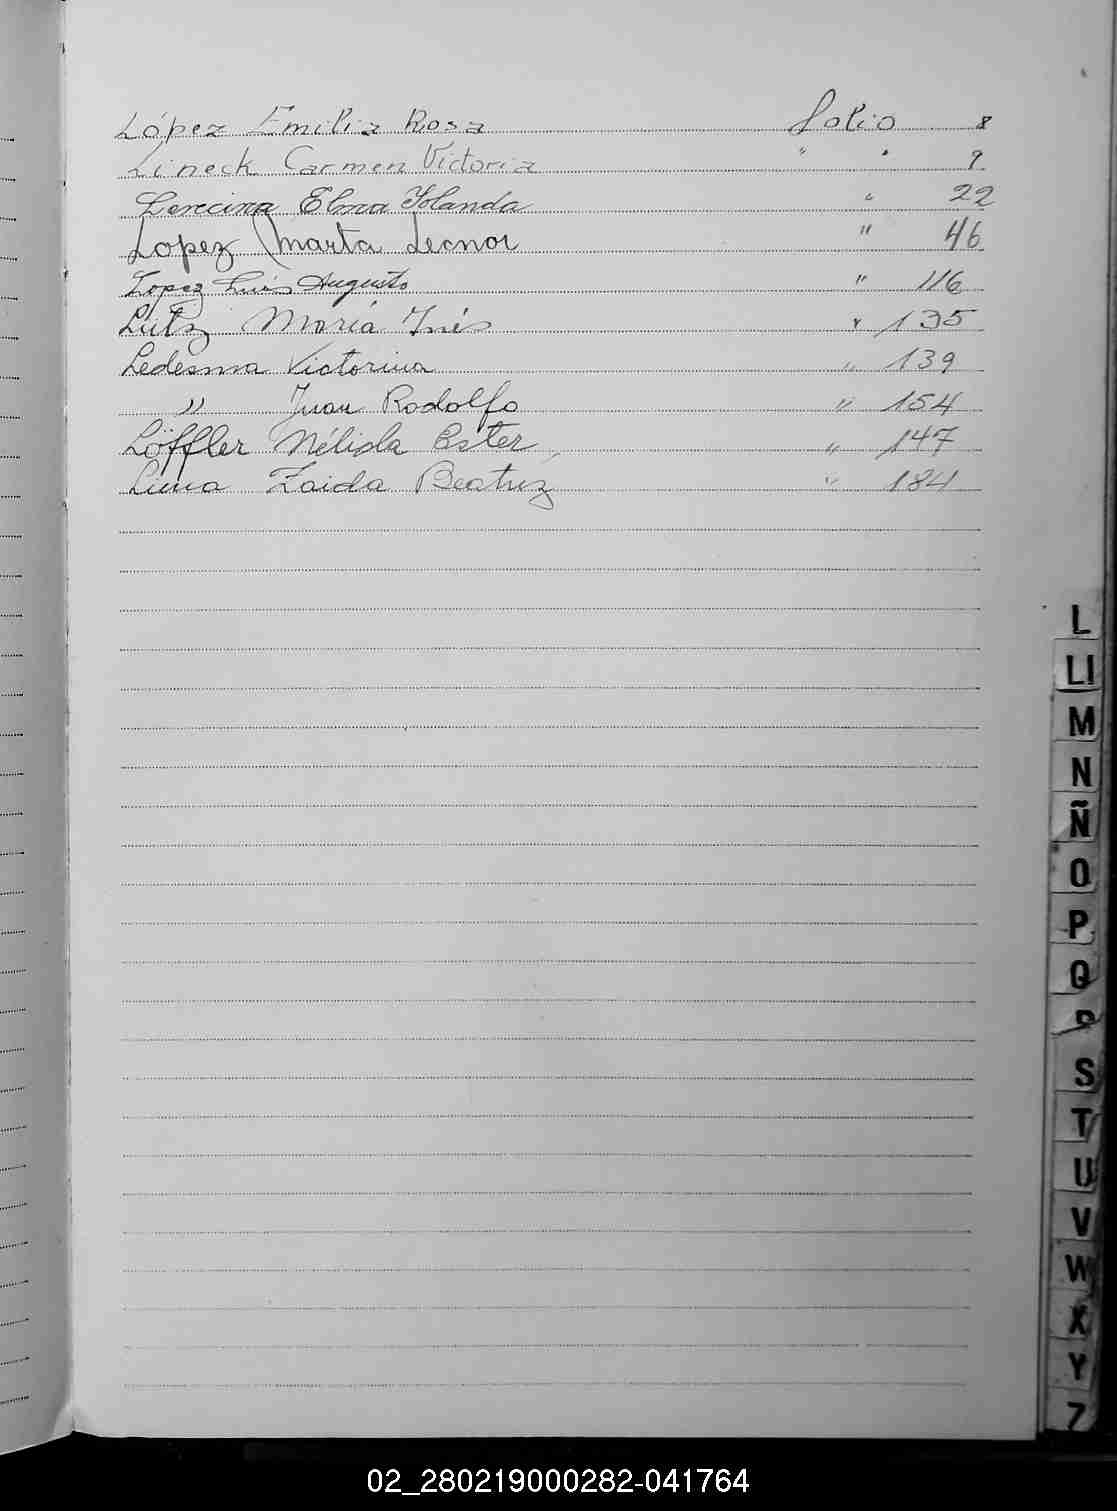 López Emilia Rosa folio 8
Lineck Carmen Victoria " " 9
Elma Yolanda " 22
Lopez Marta Leonor " 46
Lopez Luis Augusto " 116
Lutz María Inés " 135
Ledesma Victorina " 139
" Juan Rodolfo " 154
Löffler Nélida Ester " 147
Luna Zaida Beatriz " 184
L
Ll
M
N
Ñ
O
P
Q
R
S
T
U
V
W
X
Y
Z
02_280219000282-041764